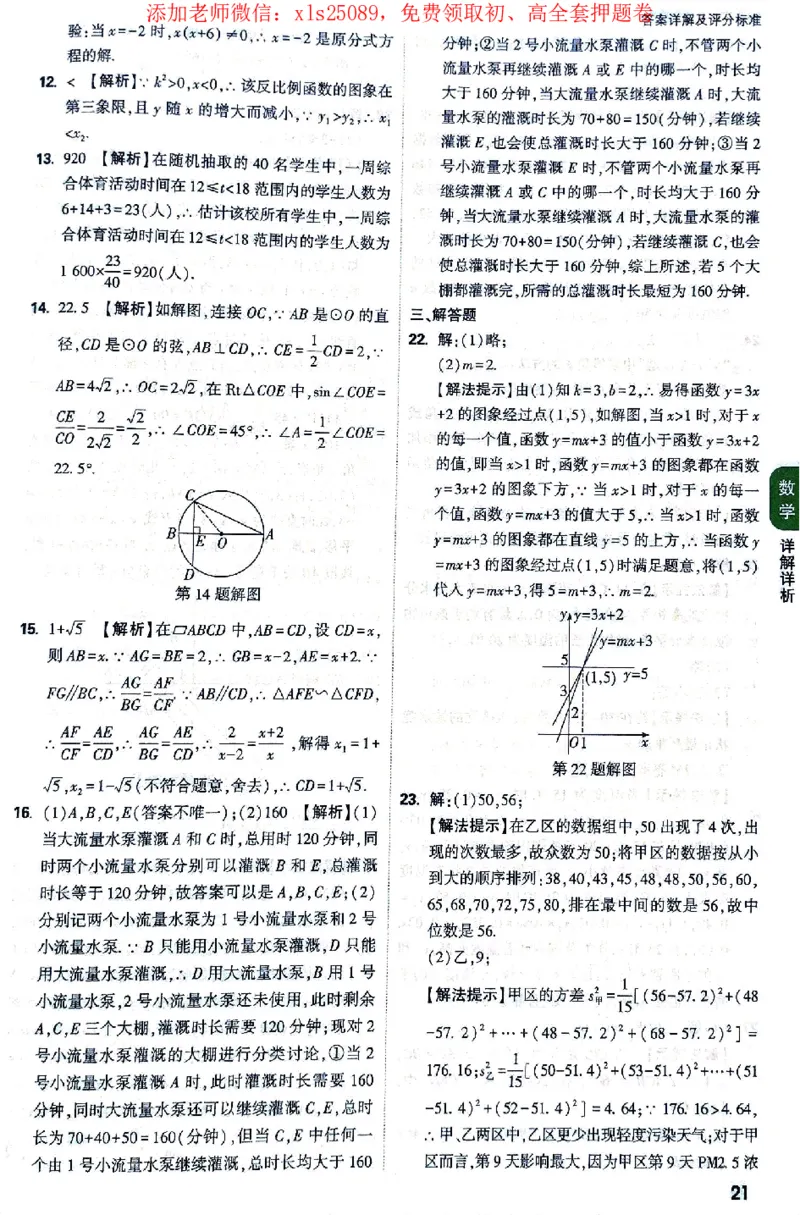 添加老师微信：xls25089，免费领取初、高全套押题卷
答案详解及评分标准
验:当x=-2时,x(x+6)≠0,∴x=-2是原分式方
程的解.
12. < 【解析】∵k²>0,x<0,∴该反比例函数的图象在
第三象限,且y随x的增大而减小,∵y₁>y₂,∴x₁
<x₂.
13. 920 【解析】在随机抽取的40名学生中,一周综
合体育活动时间在12≤t<18范围内的学生人数为
6+14+3=23(人),∴估计该校所有学生中,一周综
合体育活动时间在12≤t<18范围内的学生人数为
1 600×23/40=920(人).
14. 22.5 【解析】如解图,连接OC,∵AB是⊙O的直
径,CD是⊙O的弦,AB⊥CD,∴CE=1/2CD=2,∵
AB=4√2,∴OC=2√2,在Rt△COE中,sin∠COE=
CE/CO=2/2√2=√2/2,∴∠COE=45°,∴∠A=1/2∠COE=
22.5°.
C
B E O A
D
第14题解图
15. 1+√5 【解析】在▱ABCD中,AB=CD,设CD=x,
则AB=x.∵AG=BE=2,∴GB=x-2,AE=x+2.∵
FG//BC,∴AG/BG=AF/CF.∵AB//CD,∴△AFE∽△CFD,
∴AF/CF=AE/CD,∴AG/BG=AE/CD,∴2/x-2=x+2/x,解得x₁=1+
√5,x₂=1-√5(不符合题意,舍去),∴CD=1+√5.
16. (1)A,B,C,E(答案不唯一);(2)160 【解析】(1)
当大流量水泵灌溉A和C时,总用时120分钟,同
时两个小流量水泵分别可以灌溉B和E,总灌溉
时长等于120分钟,故答案可以是A,B,C,E;(2)
分别记两个小流量水泵为1号小流量水泵和2号
小流量水泵.∵B只能用小流量水泵灌溉,D只能
用大流量水泵灌溉,∴D用大流量水泵,B用1号
小流量水泵,2号小流量水泵还未使用,此时剩余
A,C,E三个大棚,灌溉时长需要120分钟;现对2
号小流量水泵灌溉的大棚进行分类讨论,①当2
号小流量水泵灌溉A时,此时灌溉时长需要160
分钟,同时大流量水泵还可以继续灌溉C,E,总时
长为70+40+50=160(分钟),但当C,E中任何一
个由1号小流量水泵继续灌溉,总时长均大于160
分钟;②当2号小流量水泵灌溉C时,不管两个小
流量水泵再继续灌溉A或E中的哪一个,时长均
大于160分钟,当大流量水泵继续灌溉A时,大流
量水泵的灌溉时长为70+80=150(分钟),若继续
灌溉E,也会使总灌溉时长大于160分钟;③当2
号小流量水泵灌溉E时,不管两个小流量水泵再
继续灌溉A或C中的哪一个,时长均大于160分
钟,当大流量水泵继续灌溉A时,大流量水泵的灌
溉时长为70+80=150(分钟),若继续灌溉C,也会
使总灌溉时长大于160分钟,综上所述,若5个大
棚都灌溉完,所需的总灌溉时长最短为160分钟.
三、解答题
22. 解:(1)略;
(2)m=2.
【解法提示】由(1)知k=3,b=2,∴易得函数y=3x
+2的图象经过点(1,5),如解图,当x>1时,对于x
的每一个值,函数y=mx+3的值小于函数y=3x+2
的值,即当x>1时,函数y=mx+3的图象都在函数
y=3x+2的图象下方,∵当x>1时,对于x的每一
个值,函数y=mx+3的值大于5,∴当x>1时,函数
y=mx+3的图象都在直线y=5的上方,∴当函数y
=mx+3的图象经过点(1,5)时满足题意,将(1,5)
代入y=mx+3,得5=m+3,∴m=2.
y y=3x+2
y=mx+3
5
(1,5) y=5
3
2
O 1 x
第22题解图
23. 解:(1)50,56;
【解法提示】在乙区的数据组中,50出现了4次,出
现的次数最多,故众数为50;将甲区的数据按从小
到大的顺序排列:38,40,43,45,48,48,50,56,60,
65,68,70,72,75,80,排在最中间的数是56,故中
位数是56.
(2)乙,9;
【解法提示】甲区的方差s²甲=1/15[(56-57.2)²+(48
-57.2)²+…+(48-57.2)²+(68-57.2)²]=
176.16;s²乙=1/15[(50-51.4)²+(53-51.4)²+…+(51
-51.4)²+(52-51.4)²]=4.64;∵176.16>4.64,
∴甲、乙两区中,乙区更少出现轻度污染天气;对于甲
区而言,第9天影响最大,因为甲区第9天PM2.5浓
数学
详解详析
21